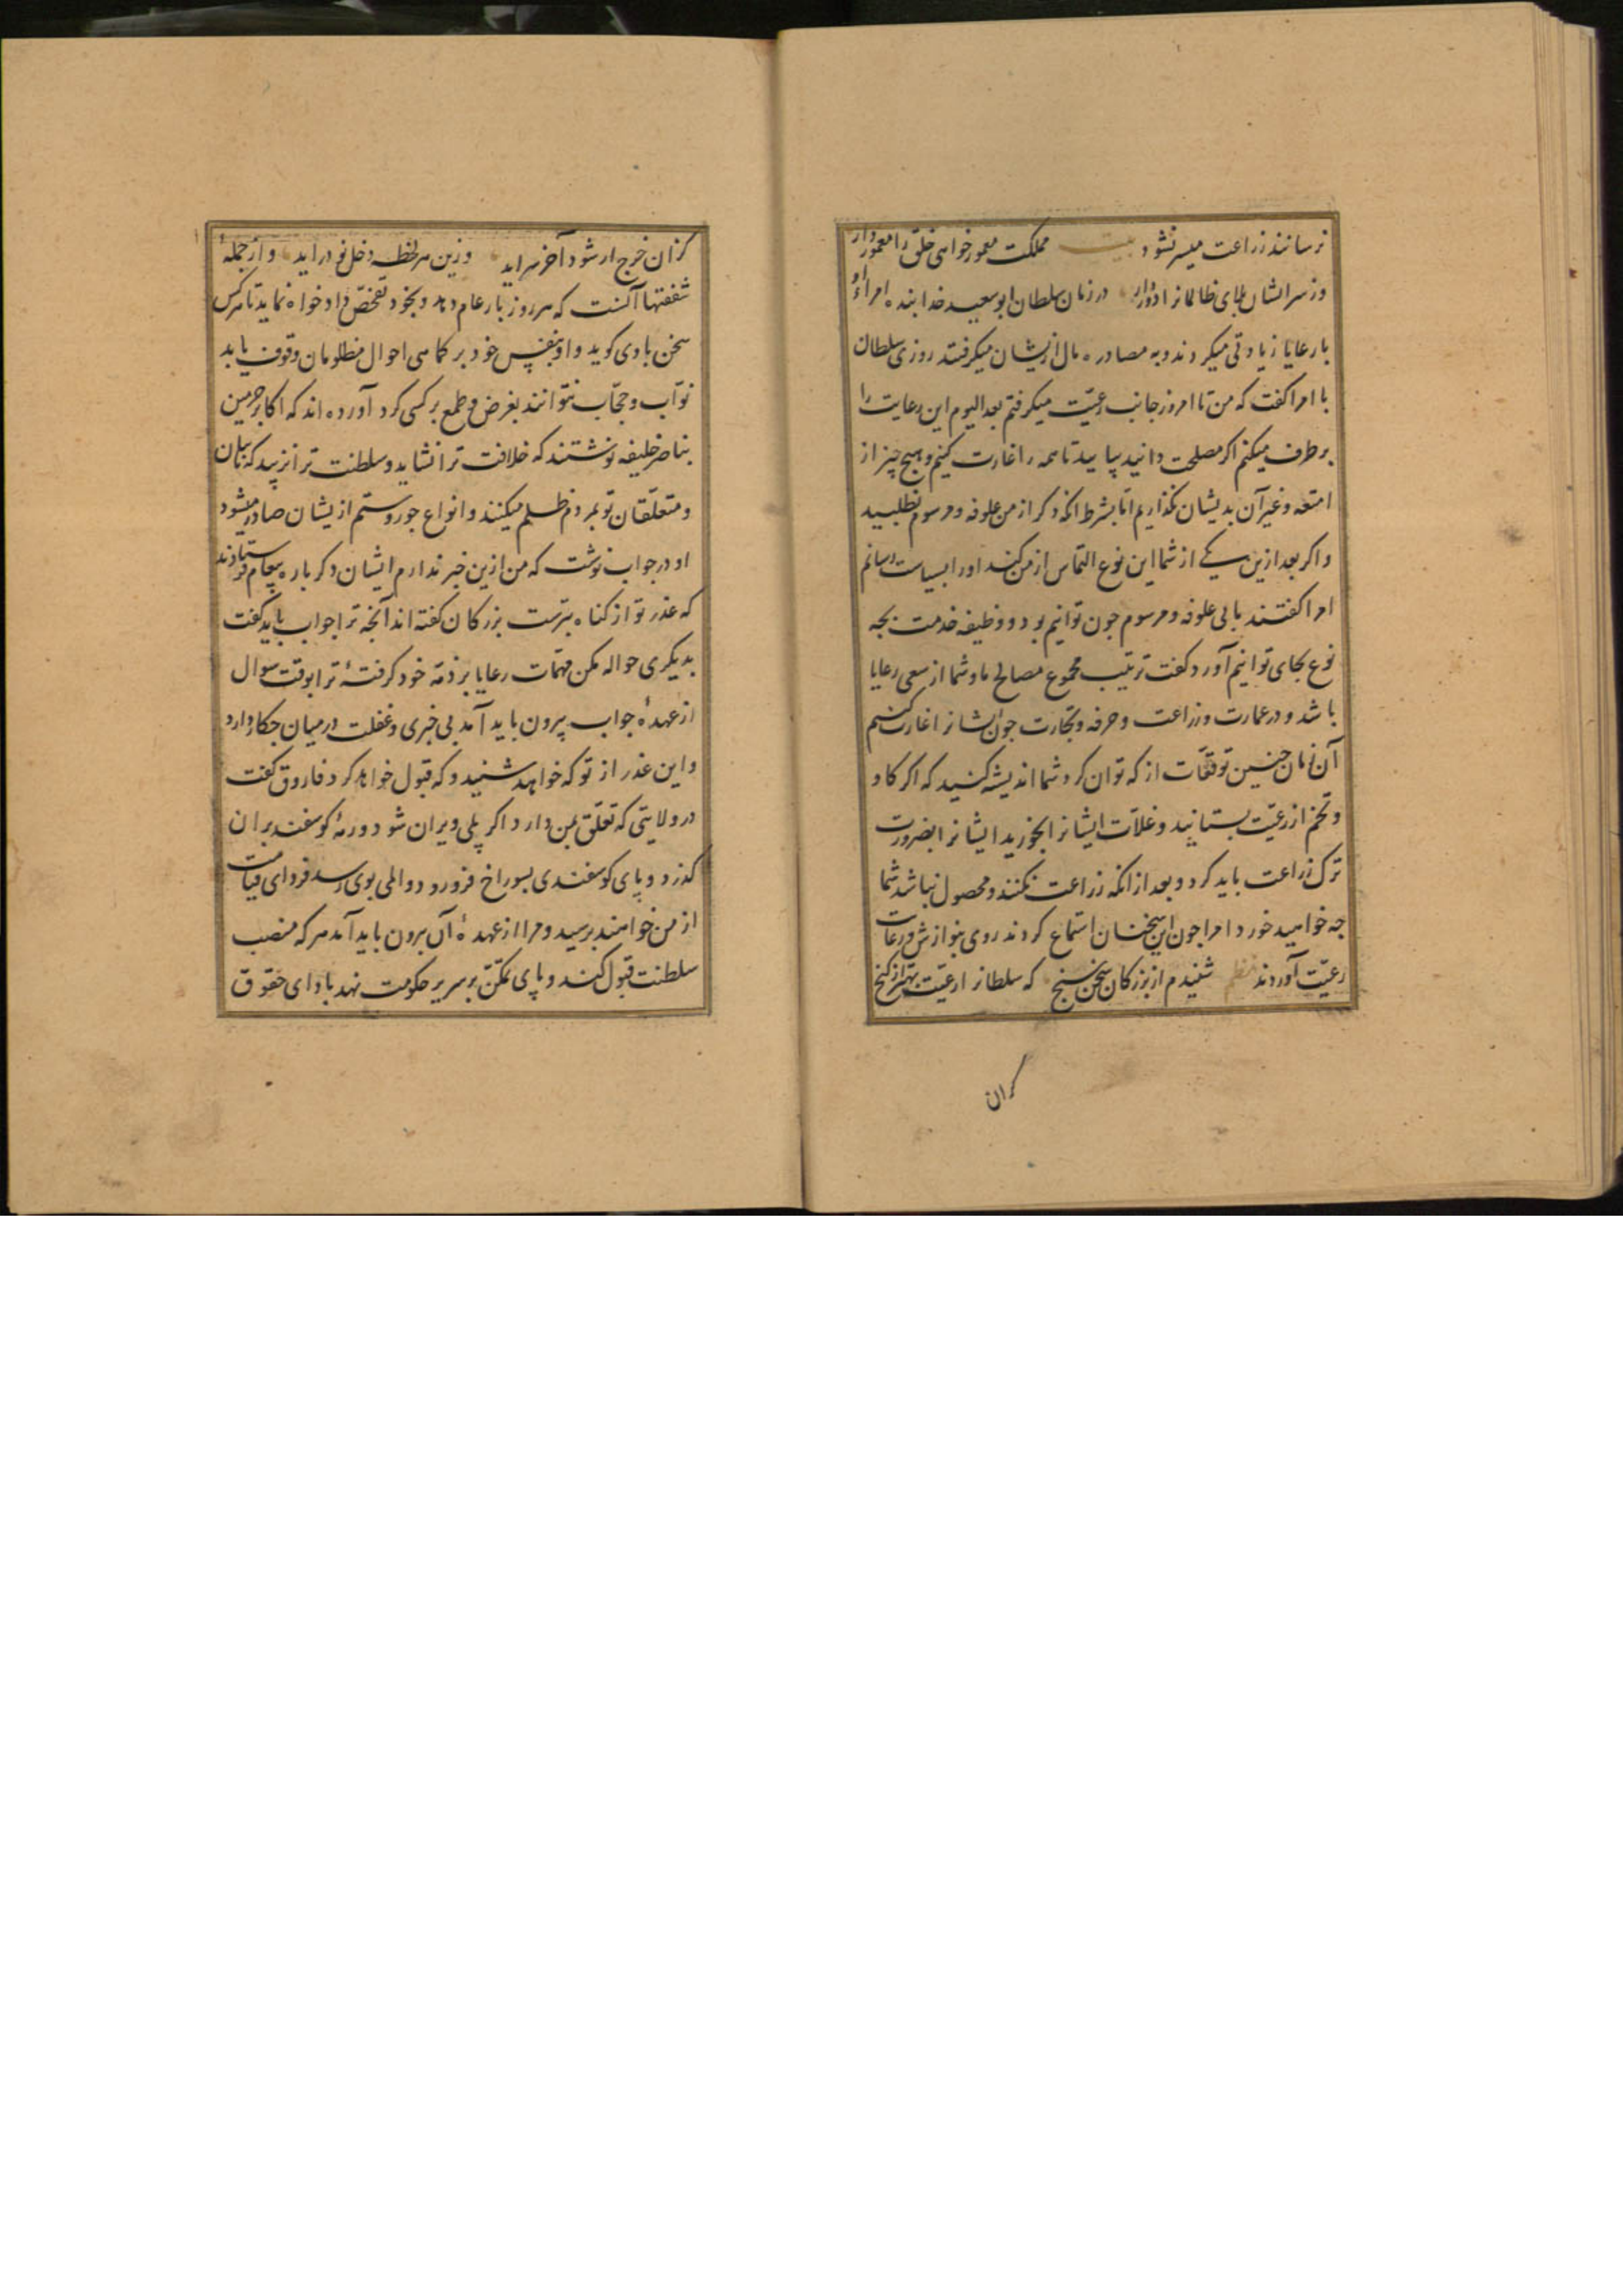 نرسانند زراعت میسر نشود بیت مملکت معمور خواهی خلق را معمور دار
وز سر ایشان بلای ظالمانرا دور دار در زمان سلطان ابوسعید خدابنده امراء او
با رعایا زیادتی میکردند و به مصادره مال ازیشان میکرفتند روزی سلطان
با امرا کفت که من تا امروز جانب رعیّت میکرفتم بعد الیوم این رعایت را
برطرف میکنم اکر مصلحت دانید بیایید تا همه را غارت کنیم و هیچ چیز از
امتعه و غیر آن بدیشان نکذاریم امّا بشرط انکه دکر از من علوفه و مرسوم نطلبید
و اکر بعد ازین یکی از شما این نوع التماس از من کند او را بسیاست رسانم
امرا کفتند با بی علوفه و مرسوم چون توانیم بود و وظیفه خدمت بچه
نوع بجای توانیم آورد کفت ترتیب مجموع مصالح ما و شما از سعی رعایا
باشد و در عمارت و زراعت و حرفه و تجارت چون ایشانرا غارت کنیم
آن زمان چنین توقعّات از که توان کرد شما اندیشه کنید که اکر کاو
و تخم از رعیّت بستانید و غلّات ایشانرا بخورید ایشانرا بضرورت
ترک زراعت باید کرد و بعد از انکه زراعت نکنند و محصول نباشد شما
چه خواهید خورد امرا چون این سخنان استماع کردند روی بنوازش و رعایت
رعیّت آوردند نظم شنیدم از بزرکان سخن سنج که سلطانرا رعیّت بهتر از کنج
کزان
کزان خرج ار شود آخر سر اید وزین هر لحظه دخل نو در اید و از جملهٔ
شفقتها آنست که هر روز بار عام دهد و بخود تفحّص داد خواه نماید تا هر کس
سخن با وی کوید و او بنفس خود بر کماهی احوال مظلومان وقوف یابد
نوّاب و حجّاب نتوانند بغرض و طمع بر کسی کرد آورده اند که اکابر حرمین
بناصر خلیفه نوشتند که خلافت ترا نشاید و سلطنت ترا نزیبد که نایبان
و متعلّقان تو بمردم ظلم میکنند و انواع جور و ستم ازیشان صادر میشود
او در جواب نوشت که من ازین خبر ندارم ایشان دکر باره پیغام فرستادند
که عذر تو از کناه بترست بزرکان کفته اند آنچه ترا جواب باید کفت
بدیکری حواله مکن مهمّات رعایا بر ذمّه خود کرفتهٔ ترا بوقت سوال
از عهدهٔ جواب بیرون باید آمد بی خبری و غفلت در میان چکار دارد
و این عذر از تو که خواهد شنید و که قبول خواهد کرد فاروق کفت
در ولایتی که تعلّق بمن دارد اکر پلی ویران شود و رمهٔ کوسفند بر ان
کذرد و پای کوسفندی بسوراخ فرو رود و المی بوی رسد فردای قیامت
از من خواهند برسید و مرا از عهدهٔ آن برون باید آمد هر که منصب
سلطنت قبول کند و پای تمکّن بر سریر حکومت نهد باادای حقوق